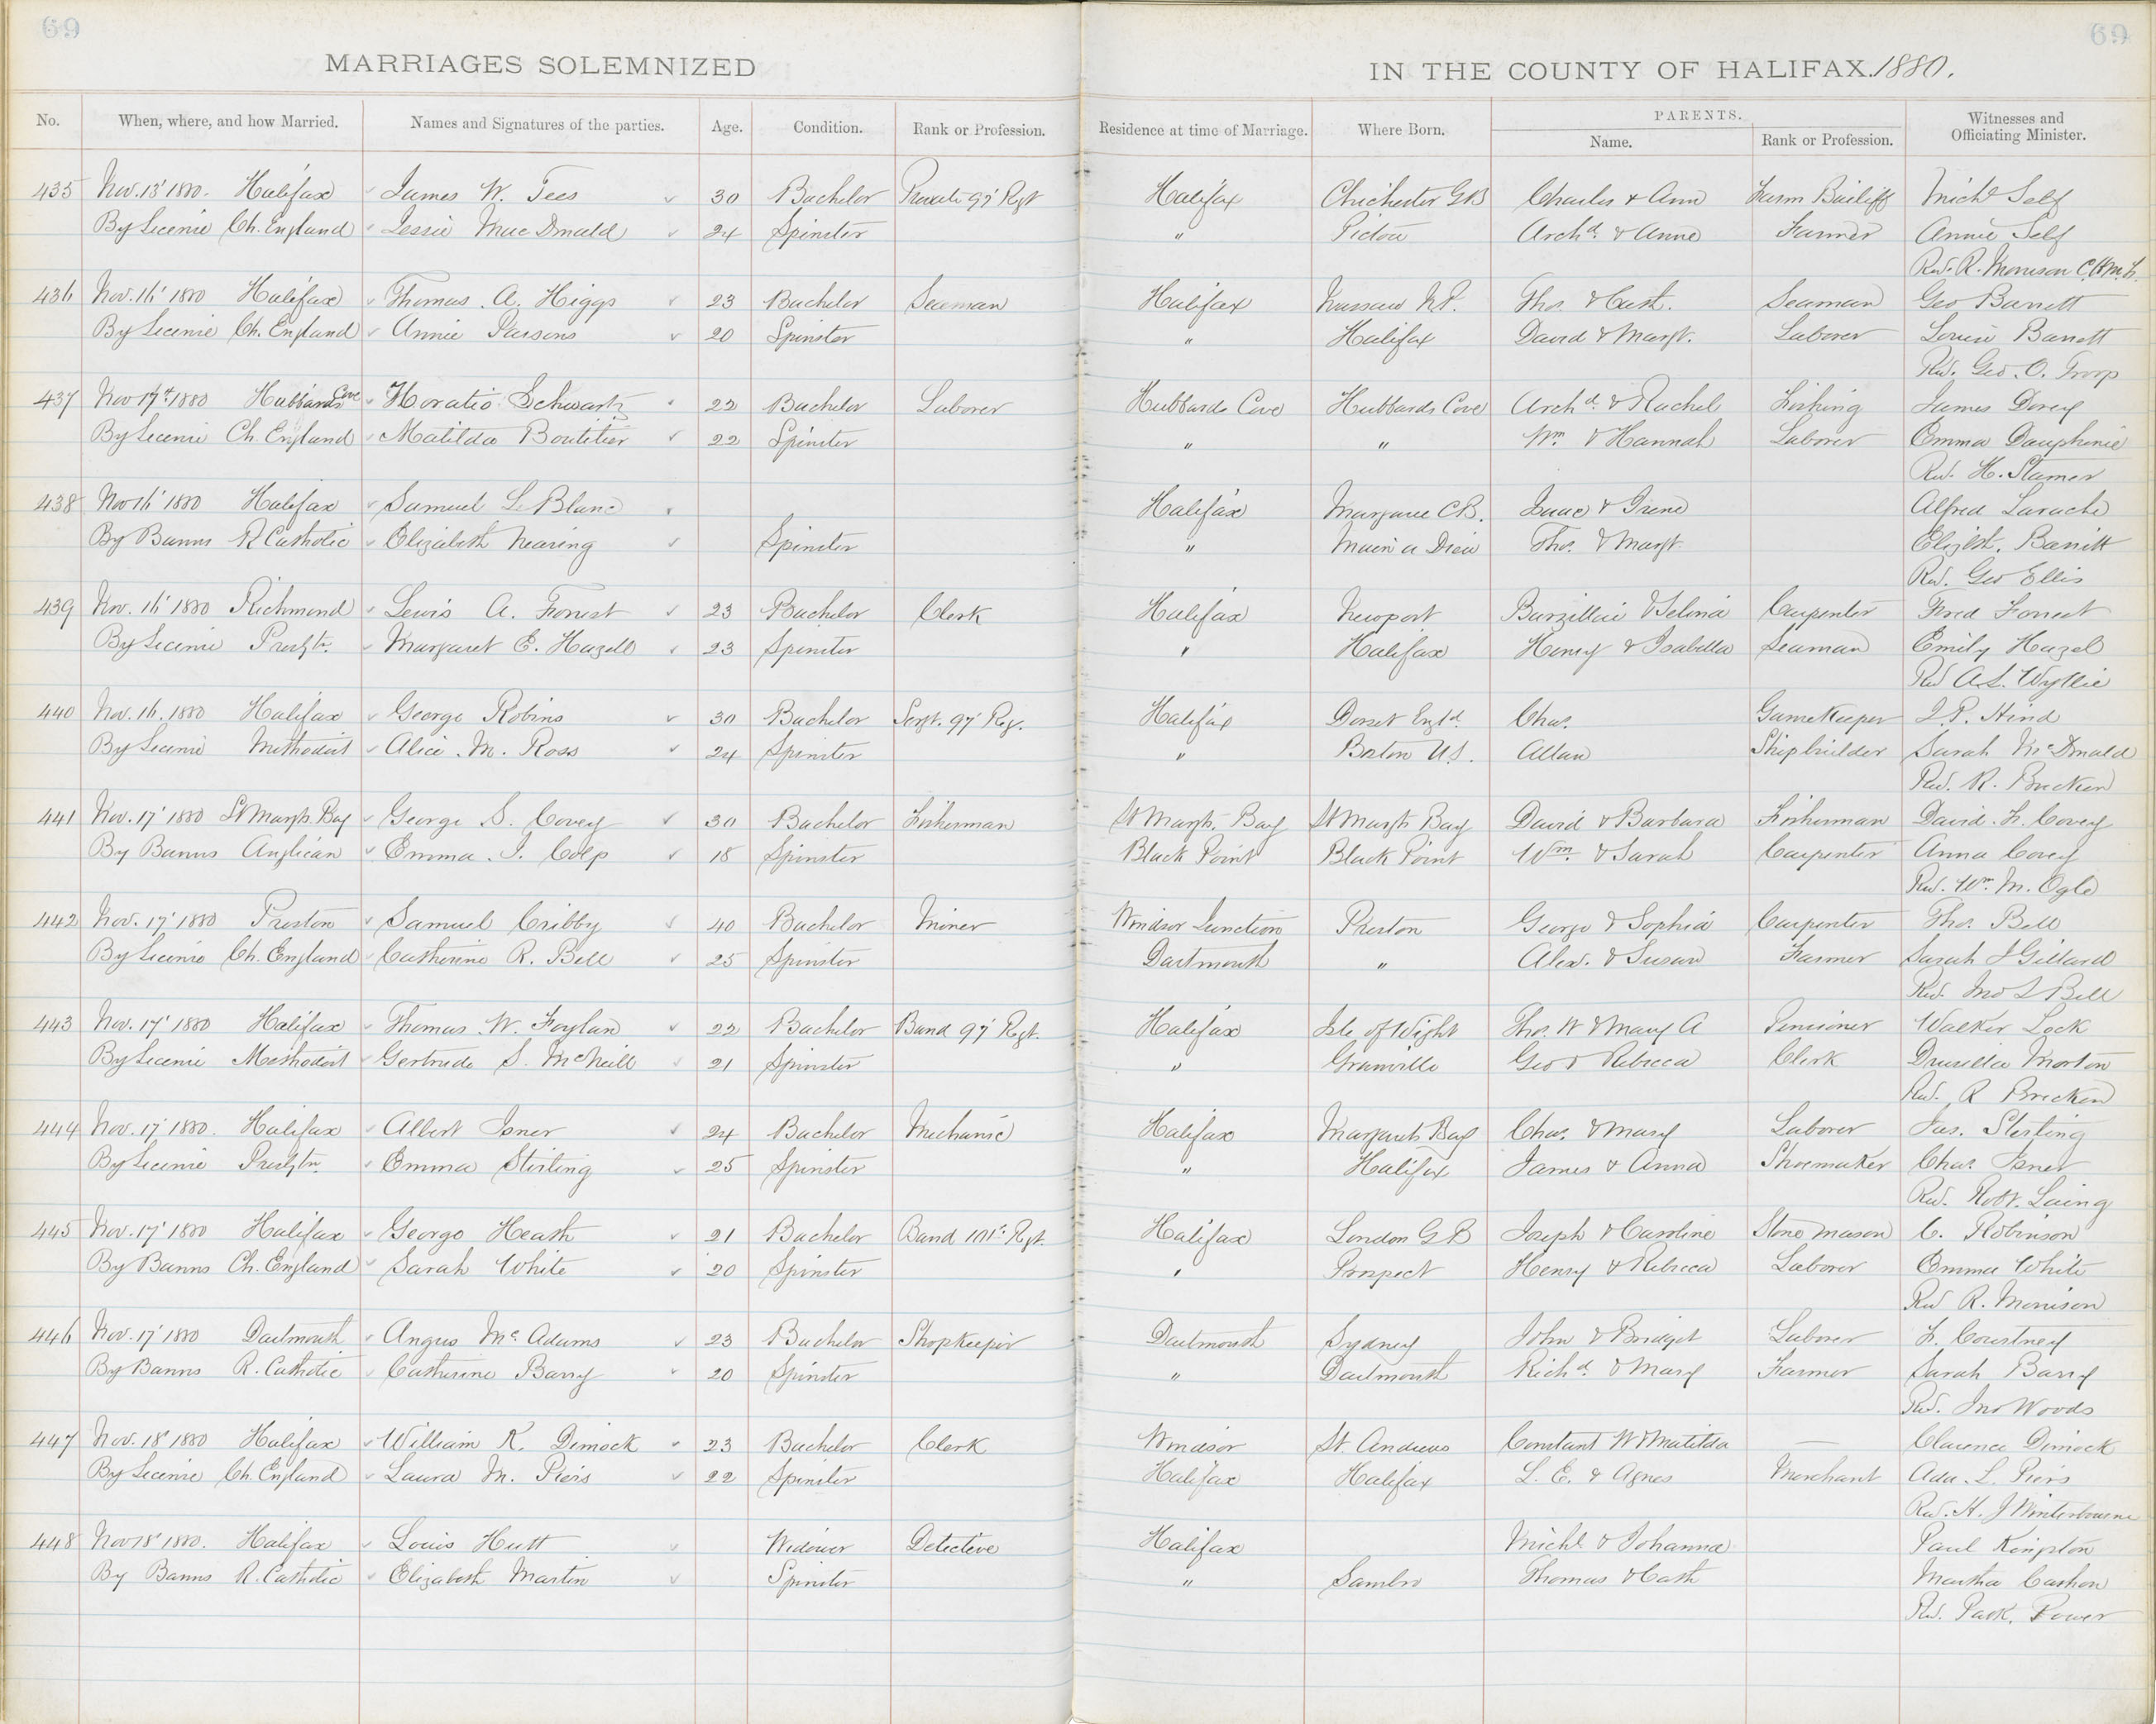 69 69
MARRIAGES SOLEMNIZED IN THE COUNTY OF HALIFAX. 1880.
No. When, where, and how Married. Names and Signatures of the parties. Age. Condition. Rank or Profession. Residence at time of Marriage. Where Born. PARENTS. Name. Rank or Profession. Witnesses and Officiating Minister.
435 Nov. 13' 1880. Halifax James W. Tees 30 Bachelor Private 97' Regt Halifax Chichester GB Charles & Ann Farm Bailiff Michl Self
By License Ch. England Jessie MacDonald 24 Spinster " Pictou Archd. & Anne Farmer Annie Self
Rev. R. Morrison
436 Nov. 16' 1880 Halifax Thomas A. Higgs 23 Bachelor Seaman Halifax Nassau N.P. Thos. & Cath. Seaman Geo Barrett
By License Ch. England Annie Parsons 20 Spinster " Halifax David & Margt. Laborer Louisa Barrett
Rev. Geo. O. Troop
437 Nov 17th 1880 Hubbards Cove Horatio Schwartz 22 Bachelor Laborer Hubbards Cove Hubbards Cove Archd. & Rachel Fishing James Dorey
By License Ch. England Matilda Boutilier 22 Spinster " " Wm. & Hannah Laborer Emma Dauphinie
Rev. H. Stamer
438 Nov 16' 1880 Halifax Samuel LeBlanc Halifax Margaree C.B. Isaac & Irene Alfred Larache
By Banns R Catholic Elizabeth Nearing Spinster " Main a Dieu Thos. & Margt. Elizbth. Barritt
Rev. Geo Ellis
439 Nov. 16' 1880 Richmond Lewis A. Forrest 23 Bachelor Clerk Halifax Newport Barzillai & Selina Carpenter Fred Forrest
By License Presbytn. Margaret E. Hazell 23 Spinster " Halifax Henry & Isabella Seaman Emily Hazel
Rev A.S. Wyllie
440 Nov. 16. 1880 Halifax George Robins 30 Bachelor Sergt. 97' Reg. Halifax Dorset Engld. Chas. Gamekeeper J.P. Hind
By License Methodist Alice M. Ross 24 Spinster " Boston U.S. Allan Shipbuilder Sarah McDonald
Rev. R. Brecken
441 Nov. 17' 1880 St Margts. Bay George S. Covey 30 Bachelor Fisherman St Margts. Bay St Margts Bay David & Barbara Fisherman David H. Covey
By Banns Anglican Emma J. Colp 18 Spinster Black Point Black Point Wm. & Sarah Carpenter Anna Covey
Rev. Wm. M. Ogle
442 Nov. 17' 1880 Preston Samuel Cribby 40 Bachelor Miner Windsor Junction Preston George & Sophia Carpenter Thos. Bell
By License Ch. England Catherine R. Bell 25 Spinster Dartmouth " Alex. & Susan Farmer Sarah J Gillard
Rev. Jno S Bell
443 Nov. 17' 1880 Halifax Thomas W. Foylan 22 Bachelor Band 97' Regt. Halifax Isle of Wight Thos. W & Mary A Pensioner Walker Lock
By License Methodist Gertrude S. McNeill 21 Spinster " Granville Geo & Rebecca Clerk Drusilla Morton
Rev. R Brecken
444 Nov. 17' 1880. Halifax Albert Isner 24 Bachelor Mechanic Halifax Margarets Bay Chas. & Mary Laborer Jas. Sterling
By License Presbytn. Emma Stirling 25 Spinster " Halifax James & Anna Shoemaker Chas. Isner
Rev. Robt. Laing
445 Nov. 17' 1880 Halifax George Heath 21 Bachelor Band 101st Regt. Halifax London G B Joseph & Caroline Stone mason C. Robinson
By Banns Ch. England Sarah White 20 Spinster " Prospect Henry & Rebecca Laborer Emma White
Rev R. Morrison
446 Nov. 17' 1880 Dartmouth Angus Mc Adams 23 Bachelor Shopkeeper Dartmouth Sydney John & Bridget Laborer F. Courtney
By Banns R. Catholic Catherine Barry 20 Spinster " Dartmouth Richd. & Mary Farmer Sarah Barry
Rev. Jno Woods
447 Nov. 18' 1880 Halifax William K. Dimock 23 Bachelor Clerk Windsor St. Andrews Constant W & Matilda — Clarence Dimock
By License Ch. England Laura M. Piers 22 Spinster Halifax Halifax L. E. & Agnes Merchant Ada L. Piers
Rev. H. J Winterbourne
448 Nov 18' 1880. Halifax Louis Hutt Widower Detective Halifax Michl. & Johanna Paul Kingston
By Banns R. Catholic Elizabeth Martin Spinster " Sambro Thomas & Cath Martha Cashon
Rev. Patk. Power